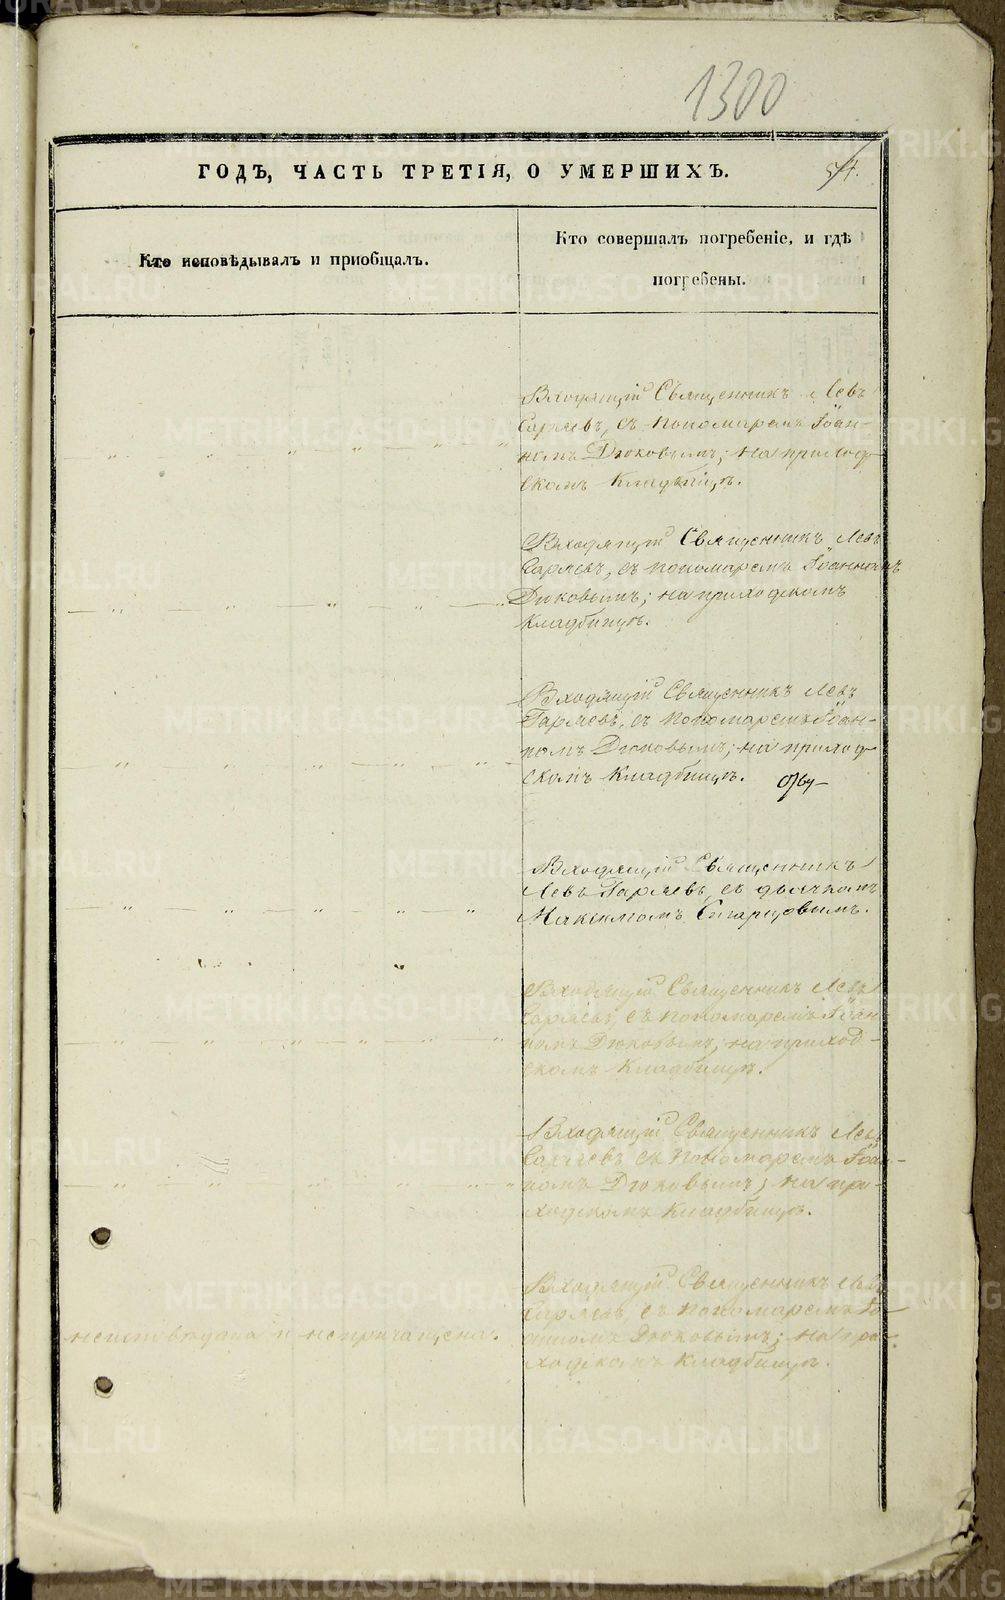 1300
ГОДЪ, ЧАСТЬ ТРЕТІЯ, О УМЕРШИХЪ.
Кто исповѣдывалъ и пріобщалъ.
Кто совершалъ погребеніе, и гдѣ
погребены.
Входящій Священникъ Левъ
Гаряевъ, съ пономаремъ Іоан-
номъ Дюковымъ; на приход-
скомъ Кладбищѣ.
Входящій Священникъ Левъ
Гаряевъ, съ пономаремъ Іоанномъ
Дюковымъ; на приходскомъ
Кладбищѣ.
Входящій Священникъ Левъ
Гаряевъ, съ пономаремъ Іоан-
номъ Дюковымъ; на приход-
скомъ Кладбищѣ.
Входящій Священникъ
Левъ Гаряевъ, съ дьячкомъ
Входящій Священникъ Левъ
Гаряевъ, съ пономаремъ Іоан
номъ Дюковымъ; на приход-
скомъ Кладбищѣ.
Входящій Священникъ Левъ
Гаряевъ съ пономаремъ Іоан-
номъ Дюковымъ; на при-
ходскомъ Кладбищѣ.
неисповѣдана и непричащена.
Входящій Священникъ Левъ
Гаряевъ, съ пономаремъ Іо-
анномъ Дюковымъ; на при-
ходскомъ Кладбищѣ.
METRIKI.GASO-URAL.RU